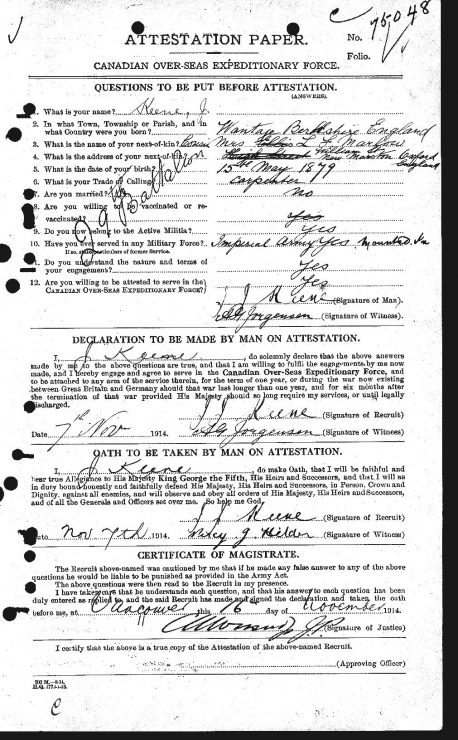 No. 75048
ATTESTATION PAPER.
Folio.
CANADIAN OVER-SEAS EXPEDITIONARY FORCE.
QUESTIONS TO BE PUT BEFORE ATTESTATION.
(ANSWERS).
1. What is your name? Keene, J.
2. In what Town, Township or Parish, and in what Country were you born? Wantage Berkshire England
3. What is the name of your next-of-kin? Mrs L.
4. What is the address of your next-of-kin? New Marston Oxford England
5. What is the date of your birth? 15th May 1879
6. What is your Trade or Calling? carpenter
7. Are you married? no
29th Battalion
8. Are you willing to be vaccinated or re-vaccinated? yes
9. Do you now belong to the Active Militia? Yes
10. Have you ever served in any Military Force? Imperial Army Yes Mounted In
If so, state particulars of former Service.
11. Do you understand the nature and terms of your engagement? Yes
12. Are you willing to be attested to serve in the CANADIAN OVER-SEAS EXPEDITIONARY FORCE? Yes
J Keene (Signature of Man).
Jorgenson (Signature of Witness).
DECLARATION TO BE MADE BY MAN ON ATTESTATION.
I, J Keene, do solemnly declare that the above answers
made by me to the above questions are true, and that I am willing to fulfil the engagements by me
now made, and I hereby engage and agree to serve in the Canadian Over-Seas Expeditionary Force, and
to be attached to any arm of the service therein, for the term of one year, or during the war now existing
between Great Britain and Germany should that war last longer than one year, and for six months after
the termination of that war provided His Majesty should so long require my services, or until legally
discharged.
J Keene (Signature of Recruit)
Date 7th Nov 1914. Jorgenson (Signature of Witness)
OATH TO BE TAKEN BY MAN ON ATTESTATION.
I, J Keene, do make Oath, that I will be faithful and
bear true Allegiance to His Majesty King George the Fifth, His Heirs and Successors, and that I will as
in duty bound honestly and faithfully defend His Majesty, His Heirs and Successors, in Person, Crown and
Dignity, against all enemies, and will observe and obey all orders of His Majesty, His Heirs and Successors,
and of all the Generals and Officers set over me. So help me God.
J Keene (Signature of Recruit)
Date Nov 7th 1914. Percy J Hilder (Signature of Witness)
CERTIFICATE OF MAGISTRATE.
The Recruit above-named was cautioned by me that if he made any false answer to any of the above
questions he would be liable to be punished as provided in the Army Act.
The above questions were then read to the Recruit in my presence.
I have taken care that he understands each question, and that his answer to each question has been
duly entered as replied to, and the said Recruit has made and signed the declaration and taken the oath
before me, at this 16 day of November 1914.
J.P. (Signature of Justice)
I certify that the above is a true copy of the Attestation of the above-named Recruit.
(Approving Officer)